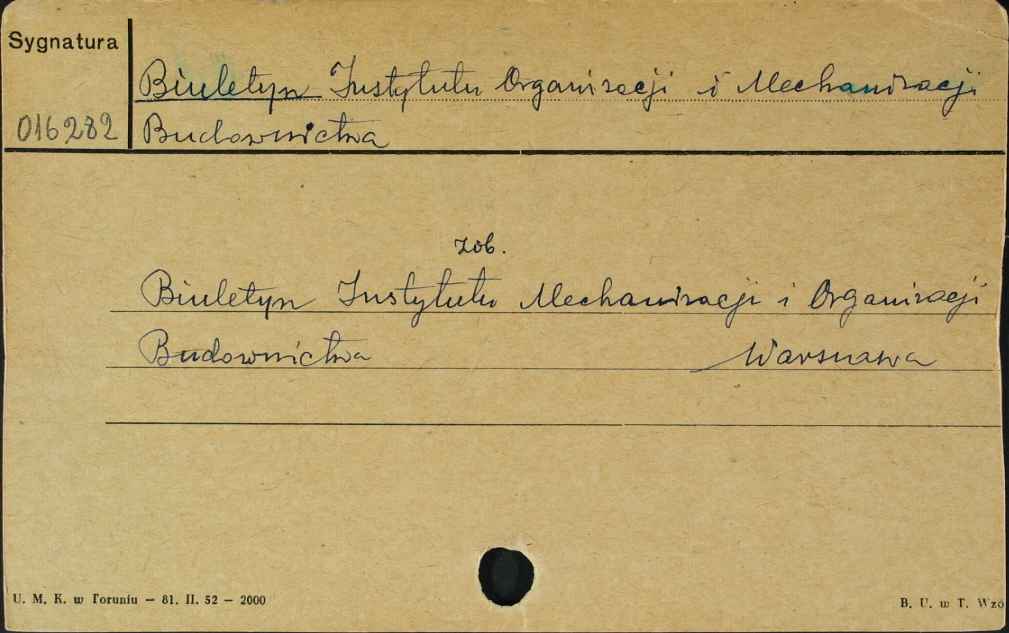 Sygnatura
Biuletyn Instytutu Organizacji i Mechanizacji
016282 Budownictwa
zob.
Biuletyn Instytutu Mechanizacji i Organizacji
Budownictwa Warszawa
U. M. K. w Toruniu — 81. II. 52 — 2000 B. U. w T. Wzó